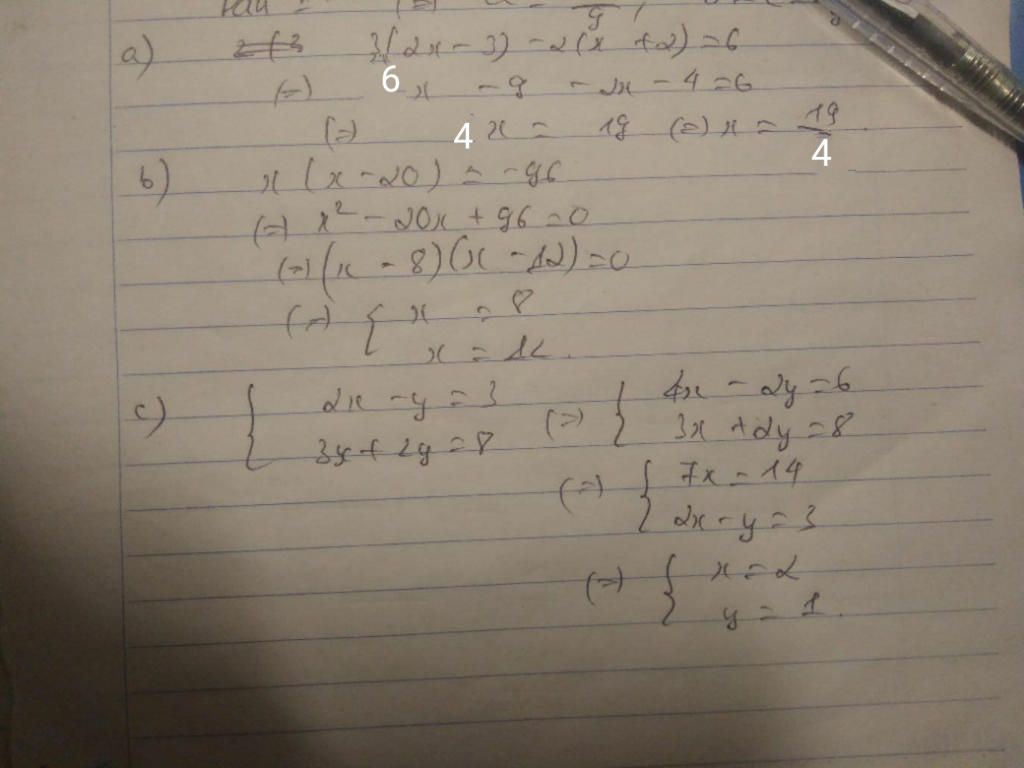 a) 3(2x - 3) - 2(x + 2) = 6
(=) 6x - 9 - 2x - 4 = 6
(=) 4x = 19 (=) x = 19/4.
b) x(x - 20) = -96
(=) x² - 20x + 96 = 0
(=) (x - 8)(x - 12) = 0
(=) { x = 8
x = 12.
c) { 2x - y = 3 (=) { 4x - 2y = 6
3x + 2y = 8 3x + 2y = 8
(=) { 7x = 14
2x - y = 3
(=) { x = 2
y = 1.